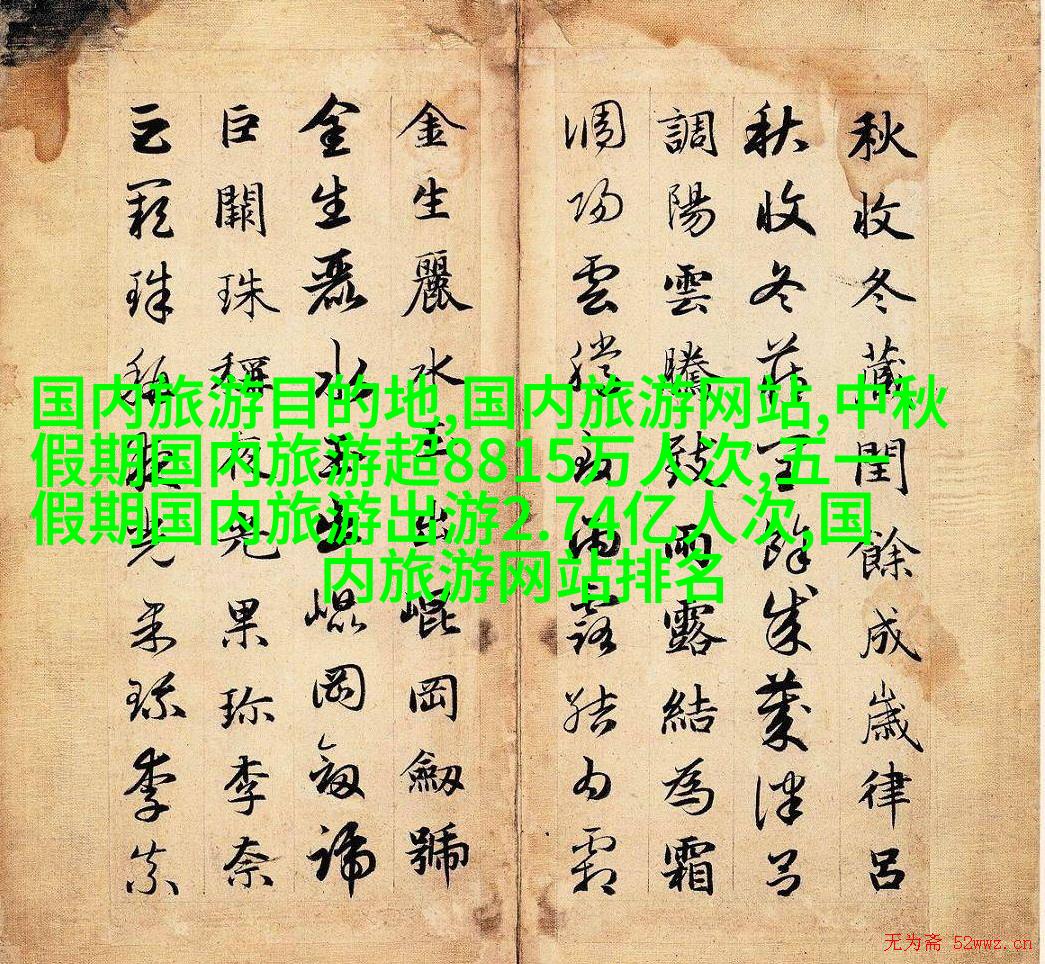 国内旅游目的地,国内旅游网站,中秋
假期国内旅游超8815万人次,五一
假期国内旅游出游2.74亿人次,国
内旅游网站排名
秋收冬藏閏餘成歲律呂
秋收冬藏閏餘成歲律呂
調陽雲騰致雨露結為霜
調陽雲騰致雨露結為霜
金生麗水玉出崐岡劔號
金生麗水玉出崐岡劔號
巨闕珠稱夜光果珍李柰
巨闕珠稱夜光果珍李柰
无为斋 52wwz.cn